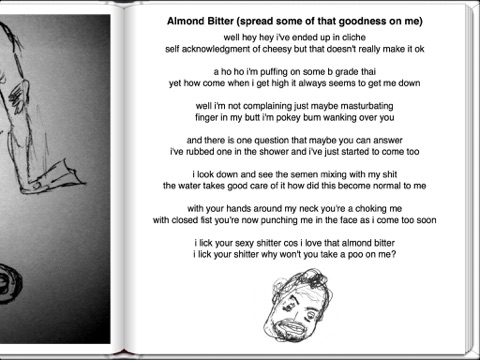 Almond Bitter (spread some of that goodness on me)
well hey hey i've ended up in cliche
self acknowledgment of cheesy but that doesn't really make it ok
a ho ho i'm puffing on some b grade thai
yet how come when i get high it always seems to get me down
well i'm not complaining just maybe masturbating
finger in my butt i'm pokey bum wanking over you
and there is one question that maybe you can answer
i've rubbed one in the shower and i've just started to come too
i look down and see the semen mixing with my shit
the water takes good care of it how did this become normal to me
with your hands around my neck you're a choking me
with closed fist you're now punching me in the face as i come too soon
i lick your sexy shitter cos i love that almond bitter
i lick your shitter why won't you take a poo on me?